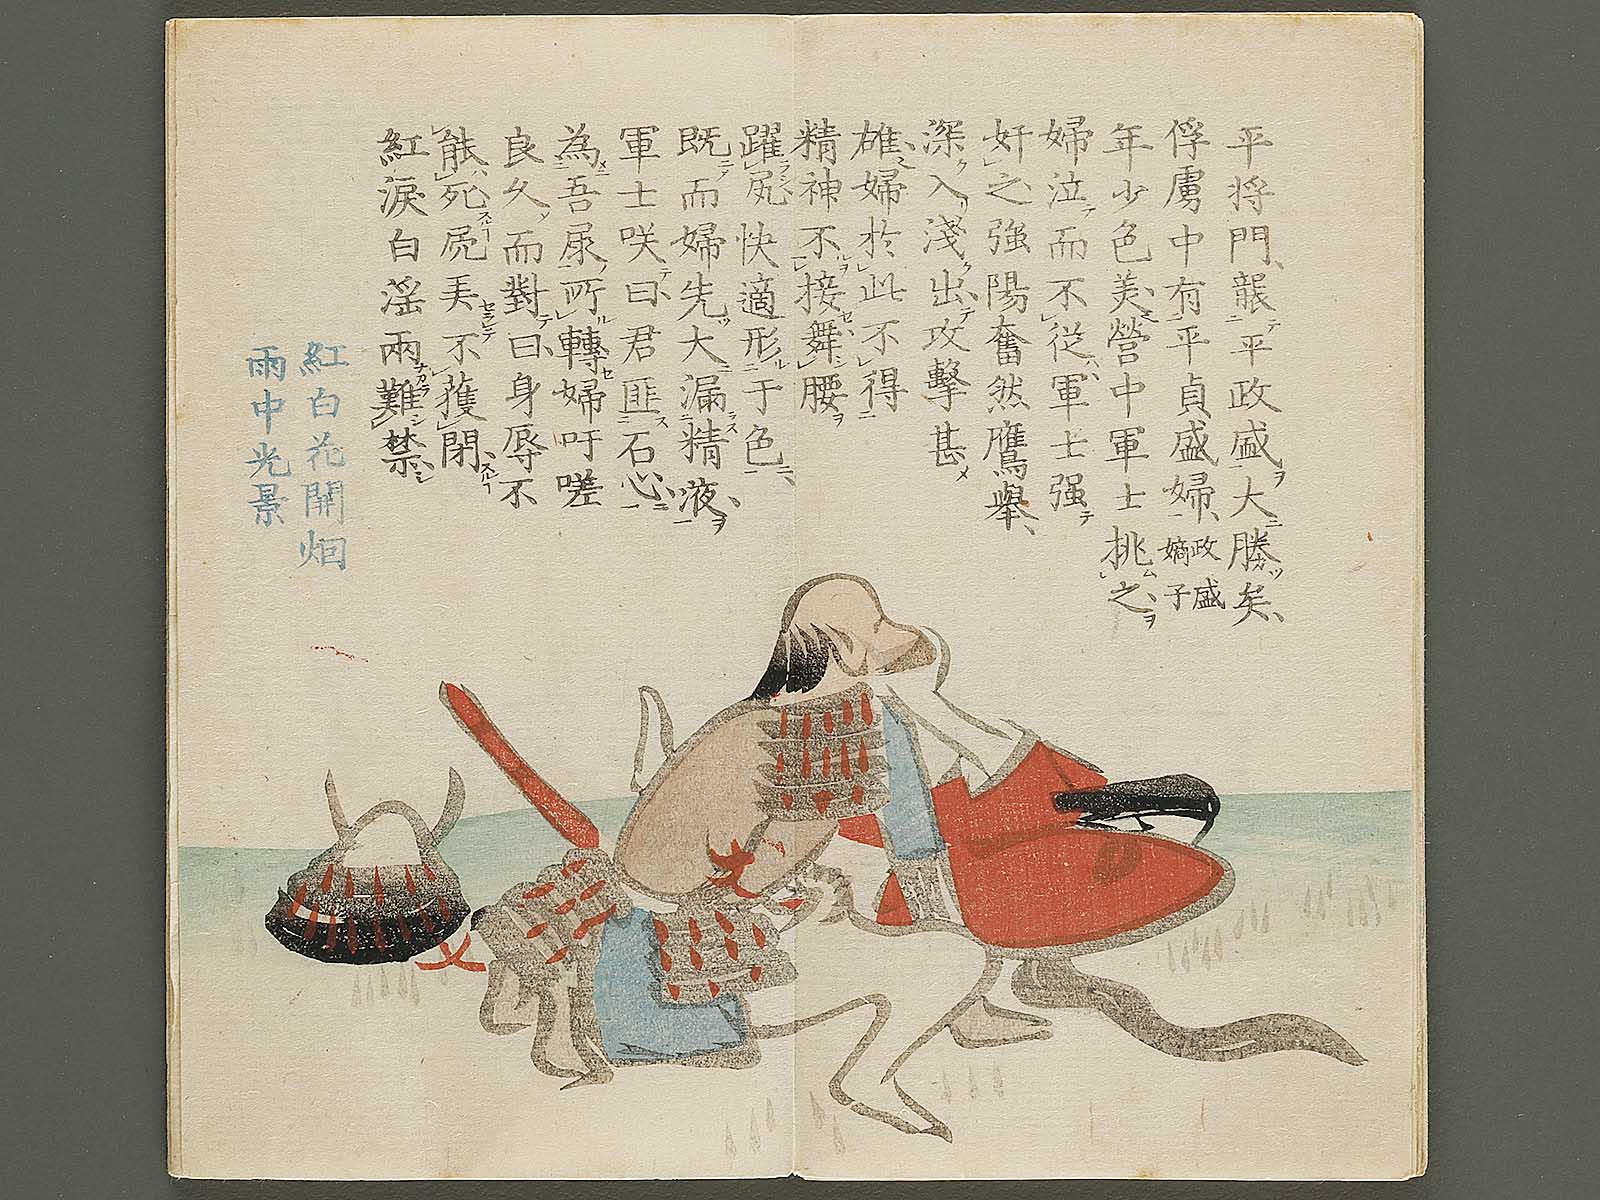 平将門、襲平政盛大勝矣、
俘虜中有平貞盛婦、政盛嫡子
年少色美、營中軍士挑之
婦泣而不從、軍士强
奸之、強陽奮然鷹舉、
深入淺出、攻擊甚
雄、婦於此不得
精神不接、舞腰
躍尻快適形于色、
既而婦先大漏精液、
軍士咲曰、君匪石心、
為吾所轉、婦吁嗟
良久而對曰、身辱不
能死、尻弄不獲閉
紅淚白淫兩難禁
紅白花開烟
雨中光景